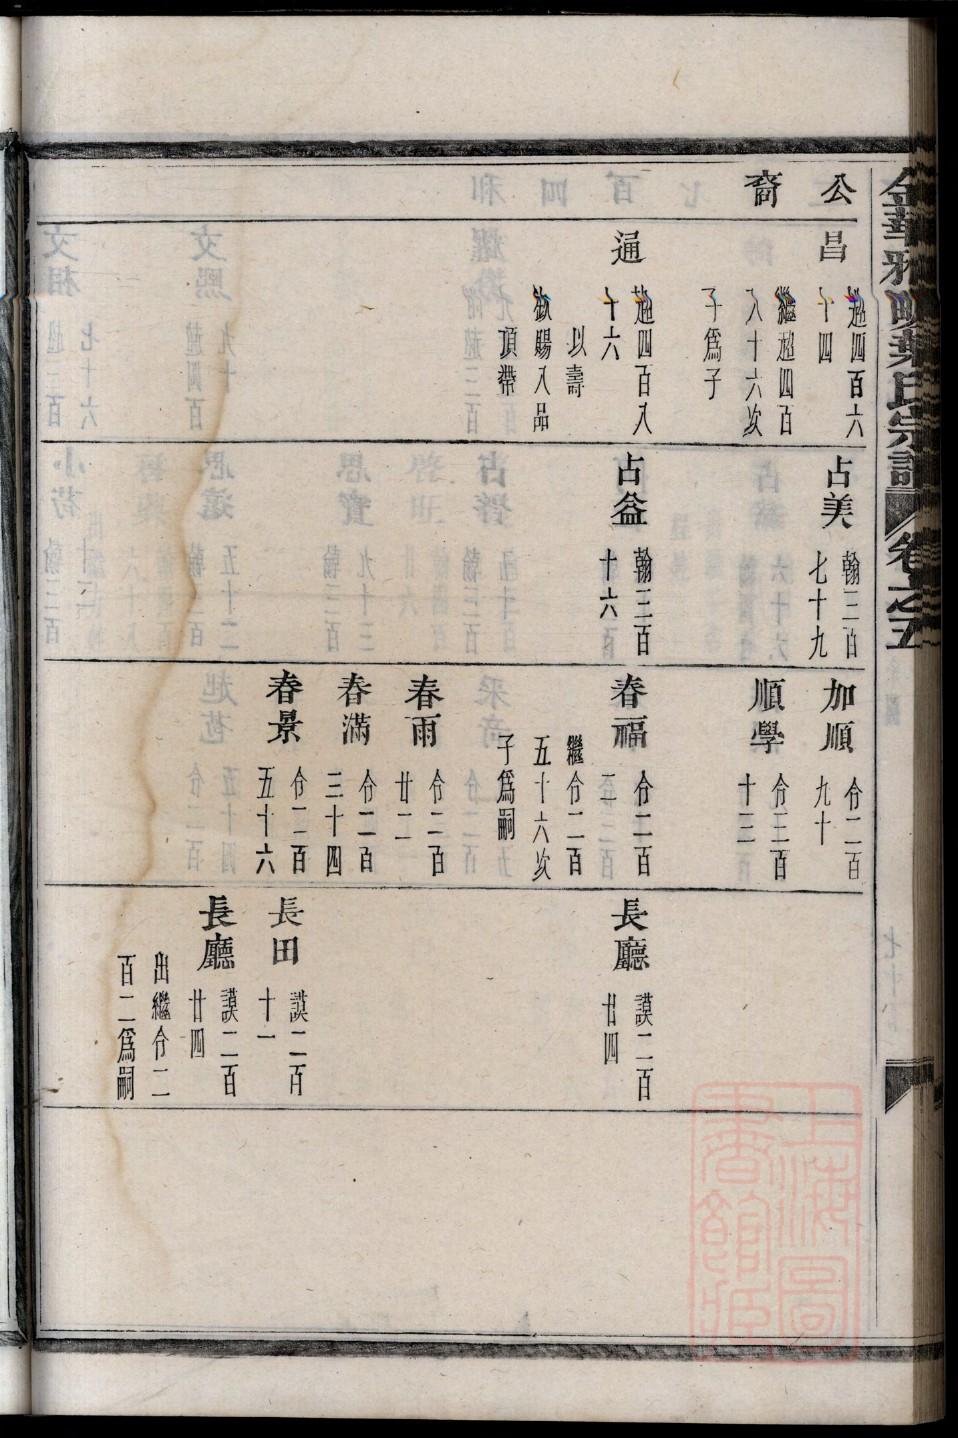 金華雅畈葉氏宗譜 卷之五
公
裔
昌
超四百六
十四
繼超四百
八十六次
子爲子
通
超四百八
十六
以壽
欽賜八品
頂帶
占美
翰三百
七十九
占益
翰三百
十六
加順
令二百
九十
順學
令三百
十三
春福
令二百
二
繼令二百
五十六次
子爲嗣
春雨
令二百
廿二
春滿
令二百
三十四
春景
令二百
五十六
長廳
謨二百
廿四
長田
謨二百
十一
長廳
謨二百
廿四
出繼令二
百二爲嗣
上海圖
書館藏